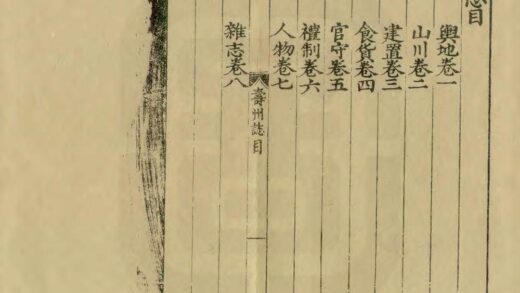 目
輿地卷一
山川卷二
建置卷三
食貨卷四
官守卷五
禮制卷六
人物卷七
雜志卷八
壽州誌 目
一